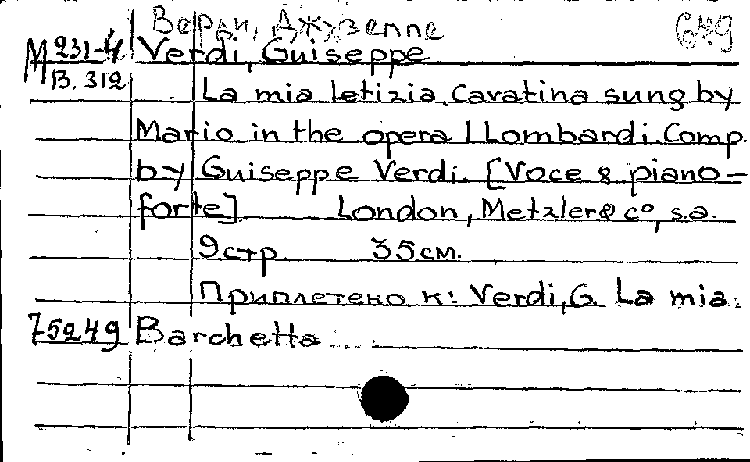 Верди, Джузеппе 649
M 231-4 Verdi, Guiseppe
B. 312 La mia letizia. Cavatina sung by
Mario in the opera I Lombardi. Comp.
by Guiseppe Verdi. [Voce & piano-
forte] London, Metzler & Co, s.a.
9 стр. 35 см.
Приплетено к: Verdi, G. La mia
75249 Barchetta